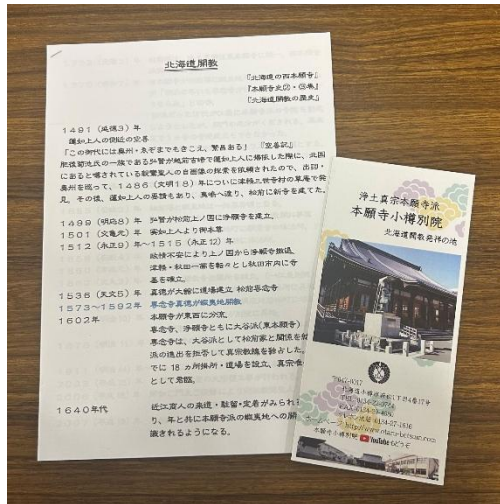 北海道開教
『北海道の西本願寺』
『本願寺史②・③巻』
『北海道開教の歴史』
1491（延徳3）年
蓮如上人の側近の空善
「この御代には奥州・ゑぞまでもきこえ、繁昌ある」『空善記』
肥後菊池氏の一族である弘賢が越前吉崎で蓮如上人に帰依した際に、北国
にあると噂されている親鸞聖人の自画像の探索を依頼されたので、出羽・
奥州を巡って、1486（文明18）年についに津軽三世寺村の草庵で発
見。その後、蓮如上人の要請もあり、夷嶋へ渡り、松前に新寺を建てた。
1499（明応8）年 弘賢が松前上ノ国に浄願寺を建立。
1501（文亀元）年 実如上人より御本尊
1512（永正9）年～1515（永正12）年
政情不安により上ノ国から浄願寺撤退。
津軽・秋田一郡を転々とし秋田市内に寺
基を確立。
1536（天文5）年 真徳が大館に道場建立 松前専念寺
1573～1592年 専念寺真徳が蝦夷地開教
1602年 本願寺が東西に分流。
専念寺、浄願寺ともに大谷派(東本願寺)
専念寺は、大谷派として松前家と関係を
派の進出を拒否して真宗教線を独占した。
でに18ヵ所掛所・道場を設立、真宗
として君臨。
1640年代 近江商人の来道・駐留・定着がみられ
り、年と共に本願寺派の蝦夷地への開
識されるようになる。
浄土真宗本願寺派
本願寺小樽別院
北海道開教発祥の地
〒047-0017
YouTube もどうぞ
本願寺小樽別院